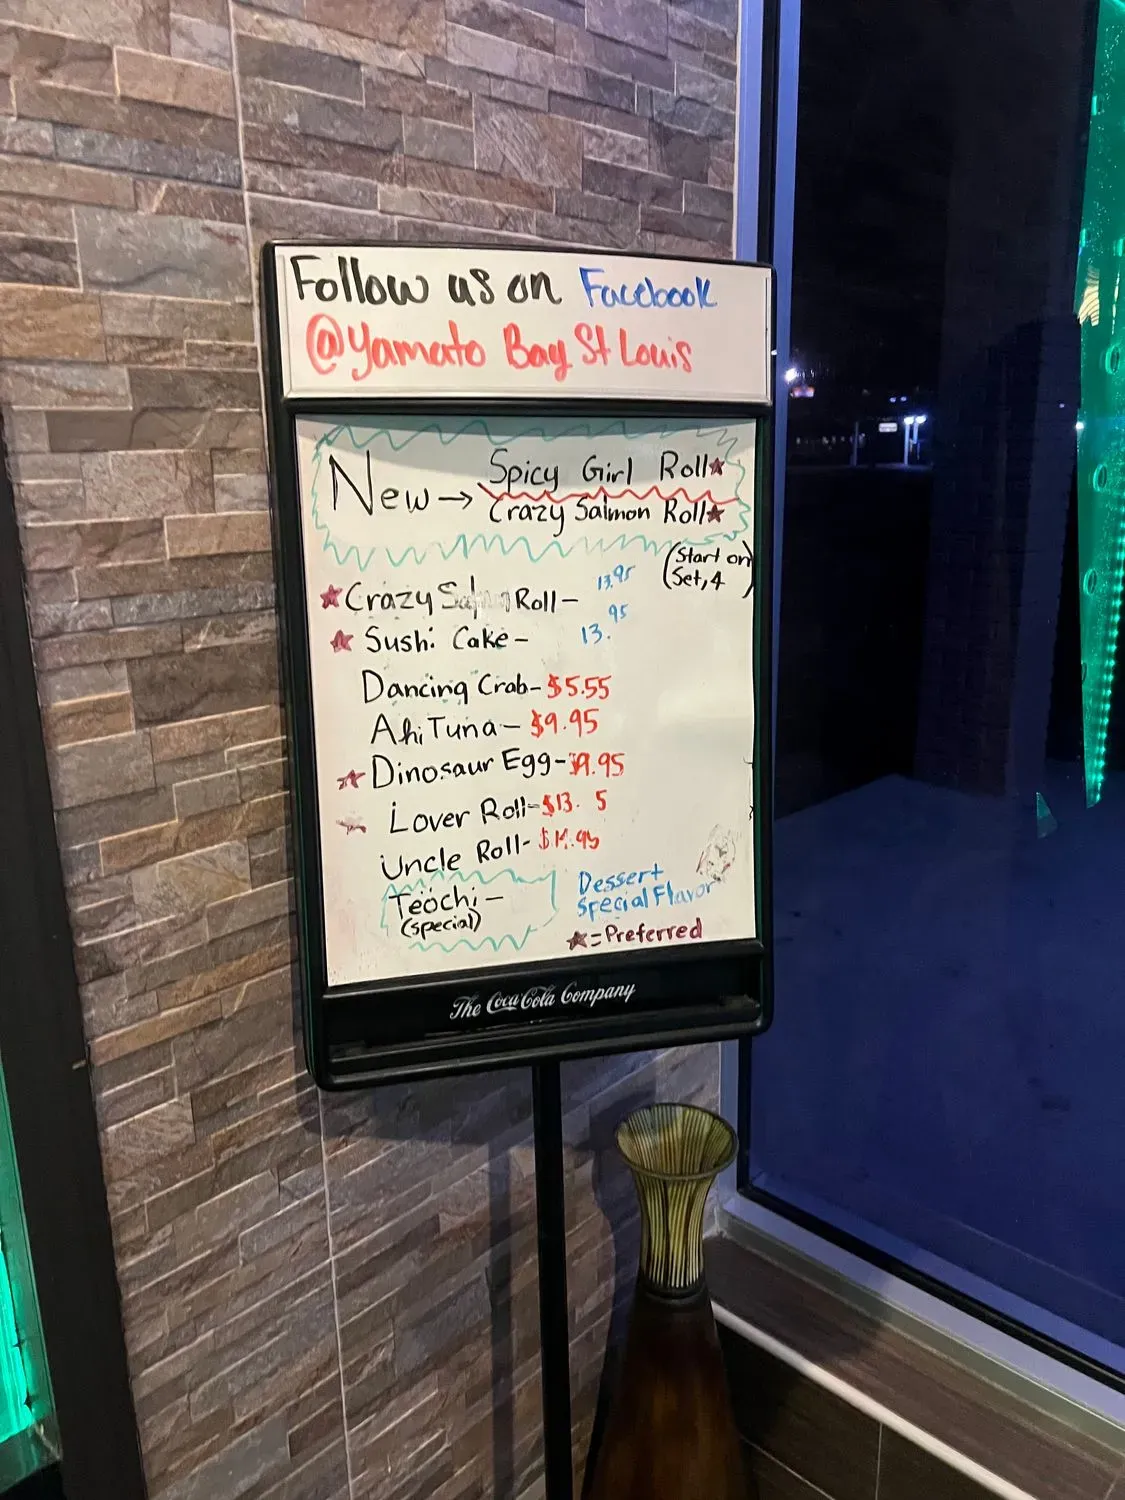 Follow us on Facebook
@Yamato Bay St Louis
New → Spicy Girl Roll★
Crazy Salmon Roll★
(Start on Set, 4)
★ Crazy Roll – 13.95
★ Sushi Cake – 13.95
Dancing Crab – $5.55
Ahi Tuna – $9.95
★ Dinosaur Egg – $9.95
Lover Roll – $13. 5
Uncle Roll -
Teochi –
(special)
Dessert
Special Flavor
★ = Preferred
The Coca-Cola Company